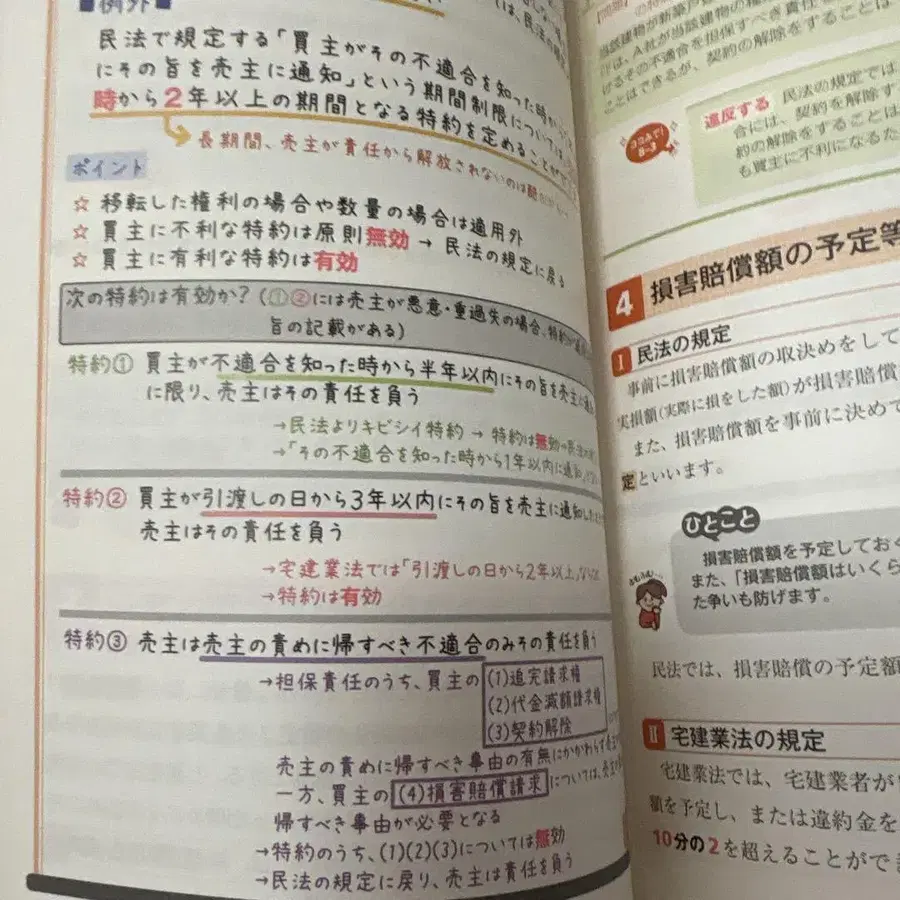 ■例外■
民法で規定する「買主がその不適合を知った時から
にその旨を売主に通知」という期間制限については、
時から2年以上の期間となる特約を定めることがで
長期間、売主が責任から解放されないのは酷
ポイント
☆ 移転した権利の場合や数量の場合は適用外
☆ 買主に不利な特約は原則無効 → 民法の規定に戻る
☆ 買主に有利な特約は有効
次の特約は有効か？(①②には売主が悪意・重過失の場合、特約が
旨の記載がある)
特約① 買主が不適合を知った時から半年以内にその旨を売主に
に限り、売主はその責任を負う
→民法よりキビシイ特約 → 特約は無効
→「その不適合を知った時から1年以内に通知
特約② 買主が引渡しの日から3年以内にその旨を売主に通知した
売主はその責任を負う
→宅建業法では「引渡しの日から2年以上」
→特約は有効
特約③ 売主は売主の責めに帰すべき不適合のみその責任を負う
→担保責任のうち、買主の
(1)追完請求権
(2)代金減額請求権
(3)契約解除
売主の責めに帰すべき事由の有無にかかわらず
一方、買主の(4)損害賠償請求については、売主
帰すべき事由が必要となる
→特約のうち、(1)(2)(3)については無効
→民法の規定に戻り、売主は責任を負う
当該建物が新築戸
は、A社が当該建物の
けるその不適合を担保すべき責任
ことはできるが、契約の解除をすることは
ココみて!
8-3
違反する 民法の規定では
合には、契約を解除す
約の解除をすることは
も買主に不利になるた
4 損害賠償額の予定等
I 民法の規定
事前に損害賠償額の取決めをして
実損額(実際に損をした額)が損害賠償
また、損害賠償額を事前に決めて
定といいます。
ひとこと
損害賠償額を予定しておく
また、「損害賠償額はいくら
た争いも防げます。
ふむふむ…
民法では、損害賠償の予定額
II 宅建業法の規定
宅建業法では、宅建業者が
額を予定し、または違約金を
10分の2を超えることができ